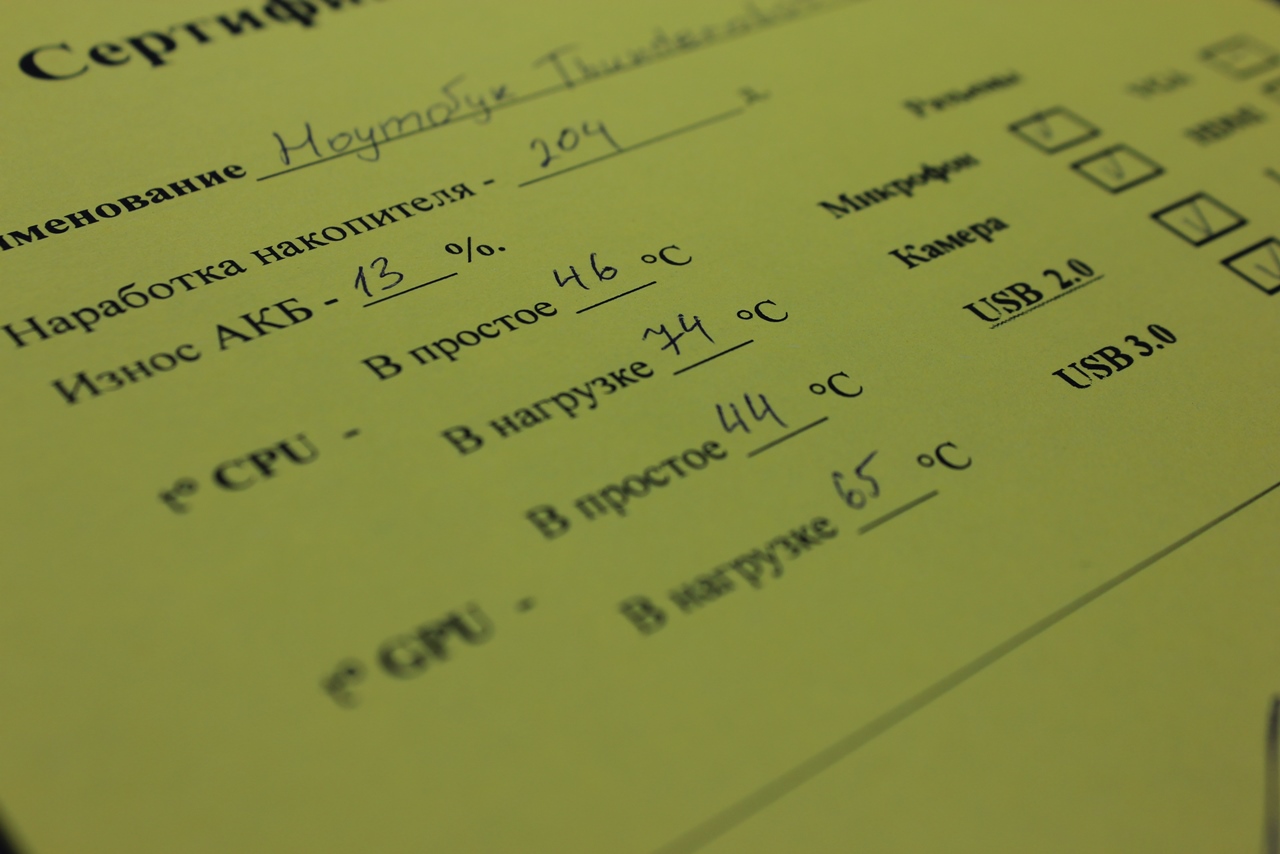 Сертифи
именование Ноутбук Thunderobot
Наработка накопителя - 204 ч
Износ АКБ - 13 %.
t° CPU - В простое 46 °C
В нагрузке 74 °C
t° GPU - В простое 44 °C
В нагрузке 65 °C
Разъемы
Микрофон
Камера
USB 2.0
USB 3.0
HDMI